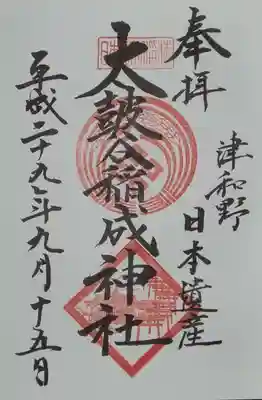 奉拝
津和野
日本遺産
太鼓谷稲成神社
平成二十九年九月十五日